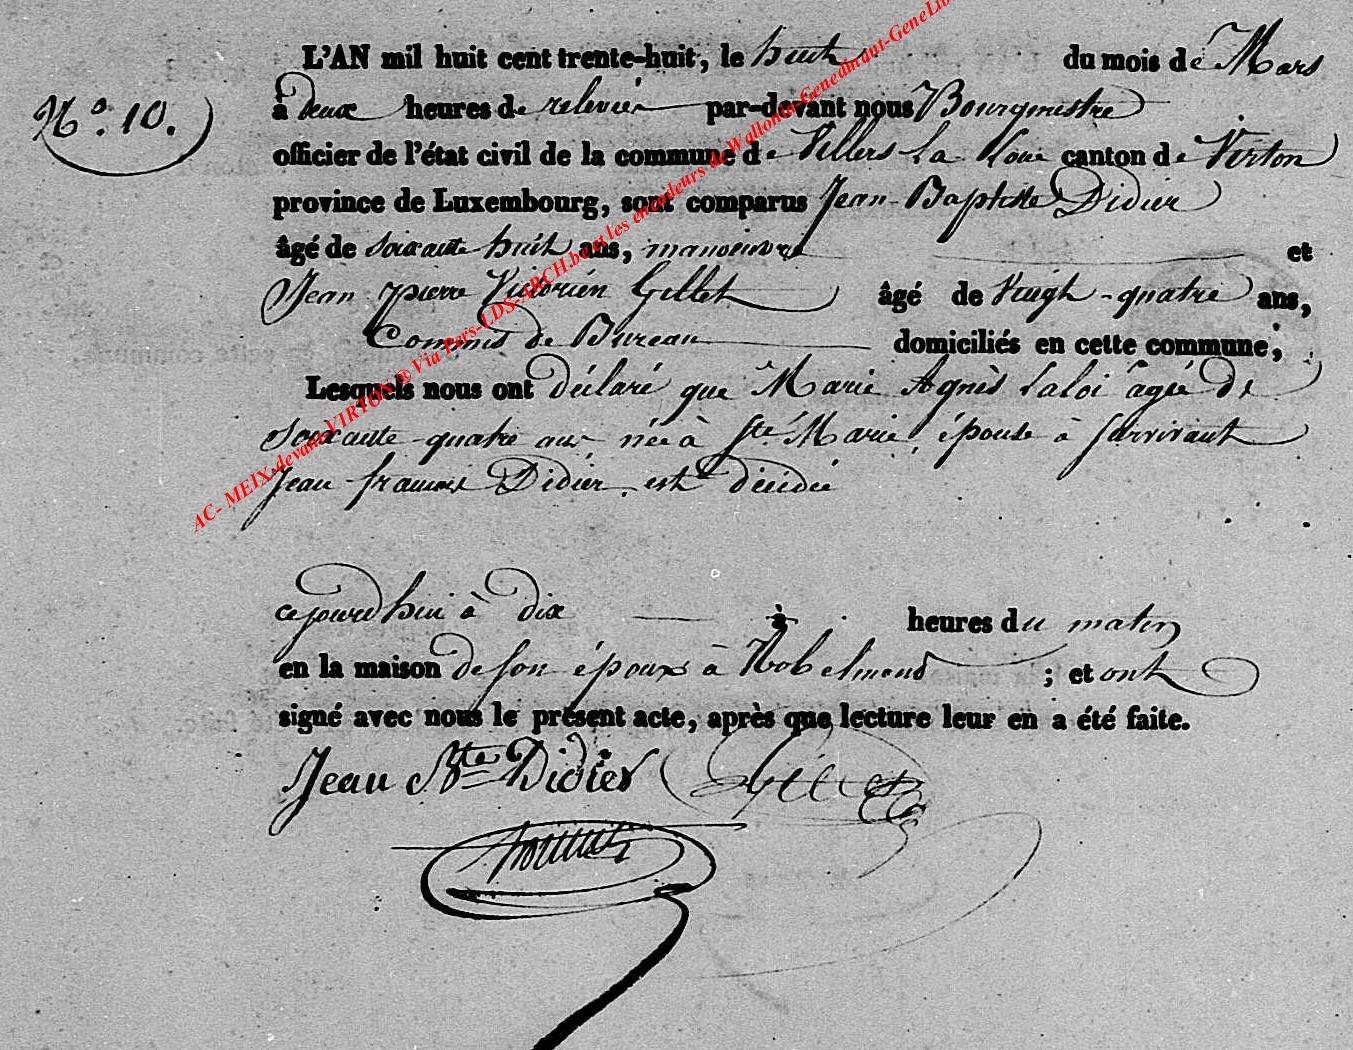 L'AN mil huit cent trente-huit, le huit du mois de Mars
N.o 10.
à deux heures de relevée par-devant nous Bourgmestre
officier de l'état civil de la commune de Villers La Loue canton de Virton
province de Luxembourg, sont comparus Jean-Baptiste Didier
âgé de soixante huit ans, manoeuvre et
Jean pierre Victorien Gillet âgé de Vingt-quatre ans,
Commis de Bureau domiciliés en cette commune;
Lesquels nous ont déclaré que Marie Agnès Laloi agée de
Soixante-quatre ans née à Ste Marie, épouse à survivant
Jean françois Didier, est décédée
cejourd'hui à dix à heures du matin
en la maison de son époux à Robelmond ; et ont
signé avec nous le présent acte, après que lecture leur en a été faite.
Jean Bte Didier Gillet
AC- MEIX-devant-VIRTON ® Via Pers-LDS-ARCH.be et les encodeurs de Wallonie-Genedinant-GeneLib